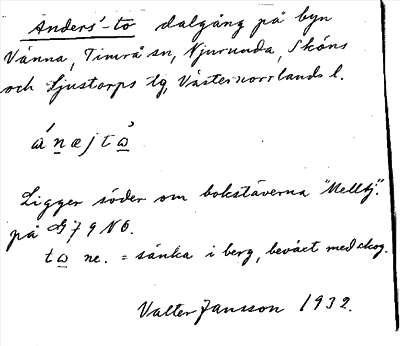 Anders'-to dalgång på byn
Vänna, Timrå sn, Njurunda, Sköns
och Ljustorps tg, Västernorrlands l.
Ligger söder om bokstäverna "Mellbj."
på G 79 NO.
to ne. = sänka i berg, beväxt med skog.
Valter Jansson 1932.